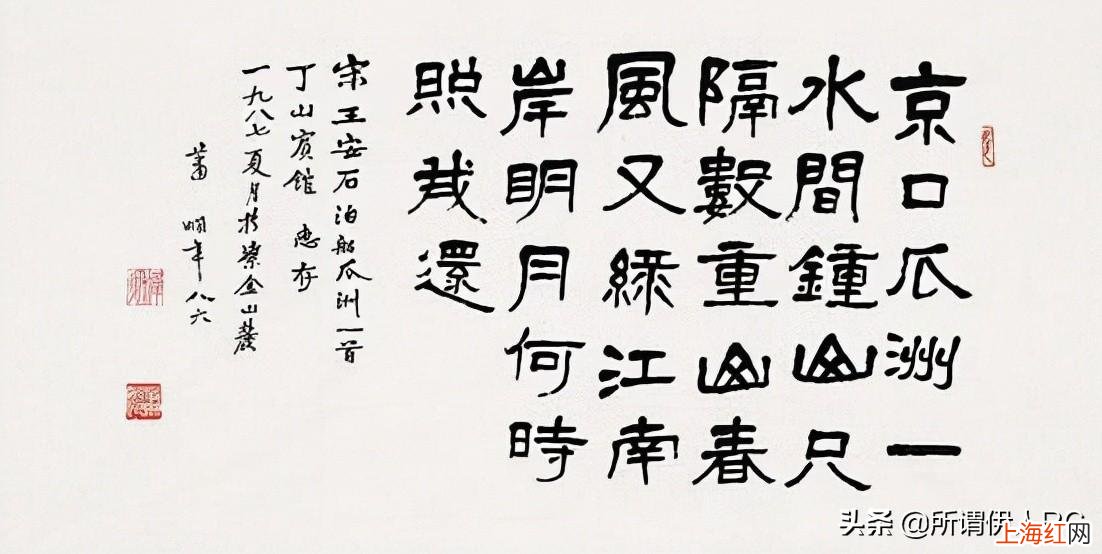 京口瓜洲一
水間鍾山只
隔數重山春
風又綠江南
岸明月何時
照我還
宋王安石泊船瓜洲一首
丁山賓館 惠存
一九八七夏月於紫金山麓
蕭嫻年八六
头条 @所谓伊
上海红网